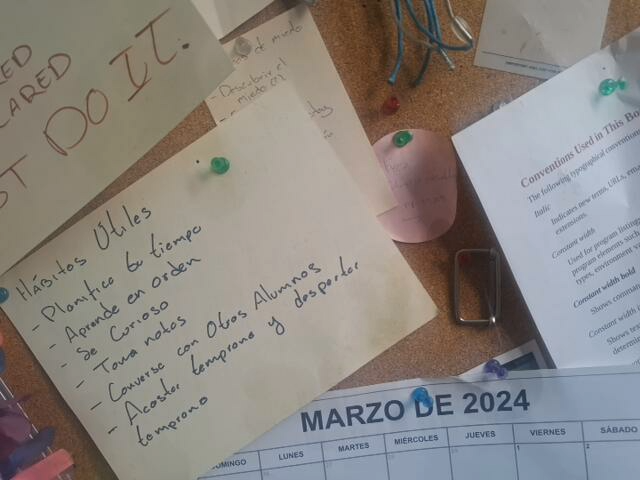 RED
CARED
ST DO IT.
de miedo
- Descubrir el
miedo en
Hábitos Útiles
- Planifica tu tiempo
- Aprende en orden
- Se Curioso
- Toma notas
- Converse con Otros Alumnos
- Acostar temprano y despertar
temprano
Conventions Used in This Bo
The following typographical convention
Italic
Indicates new terms, URLs, ema
extensions.
Constant width
Used for program listing
program elements such
types, environment va
Constant width bold
Shows comman
Constant width
Shows
determin
MARZO DE 2024
OMINGO
LUNES
MARTES
MIÉRCOLES
JUEVES
VIERNES
SÁBADO
1
2